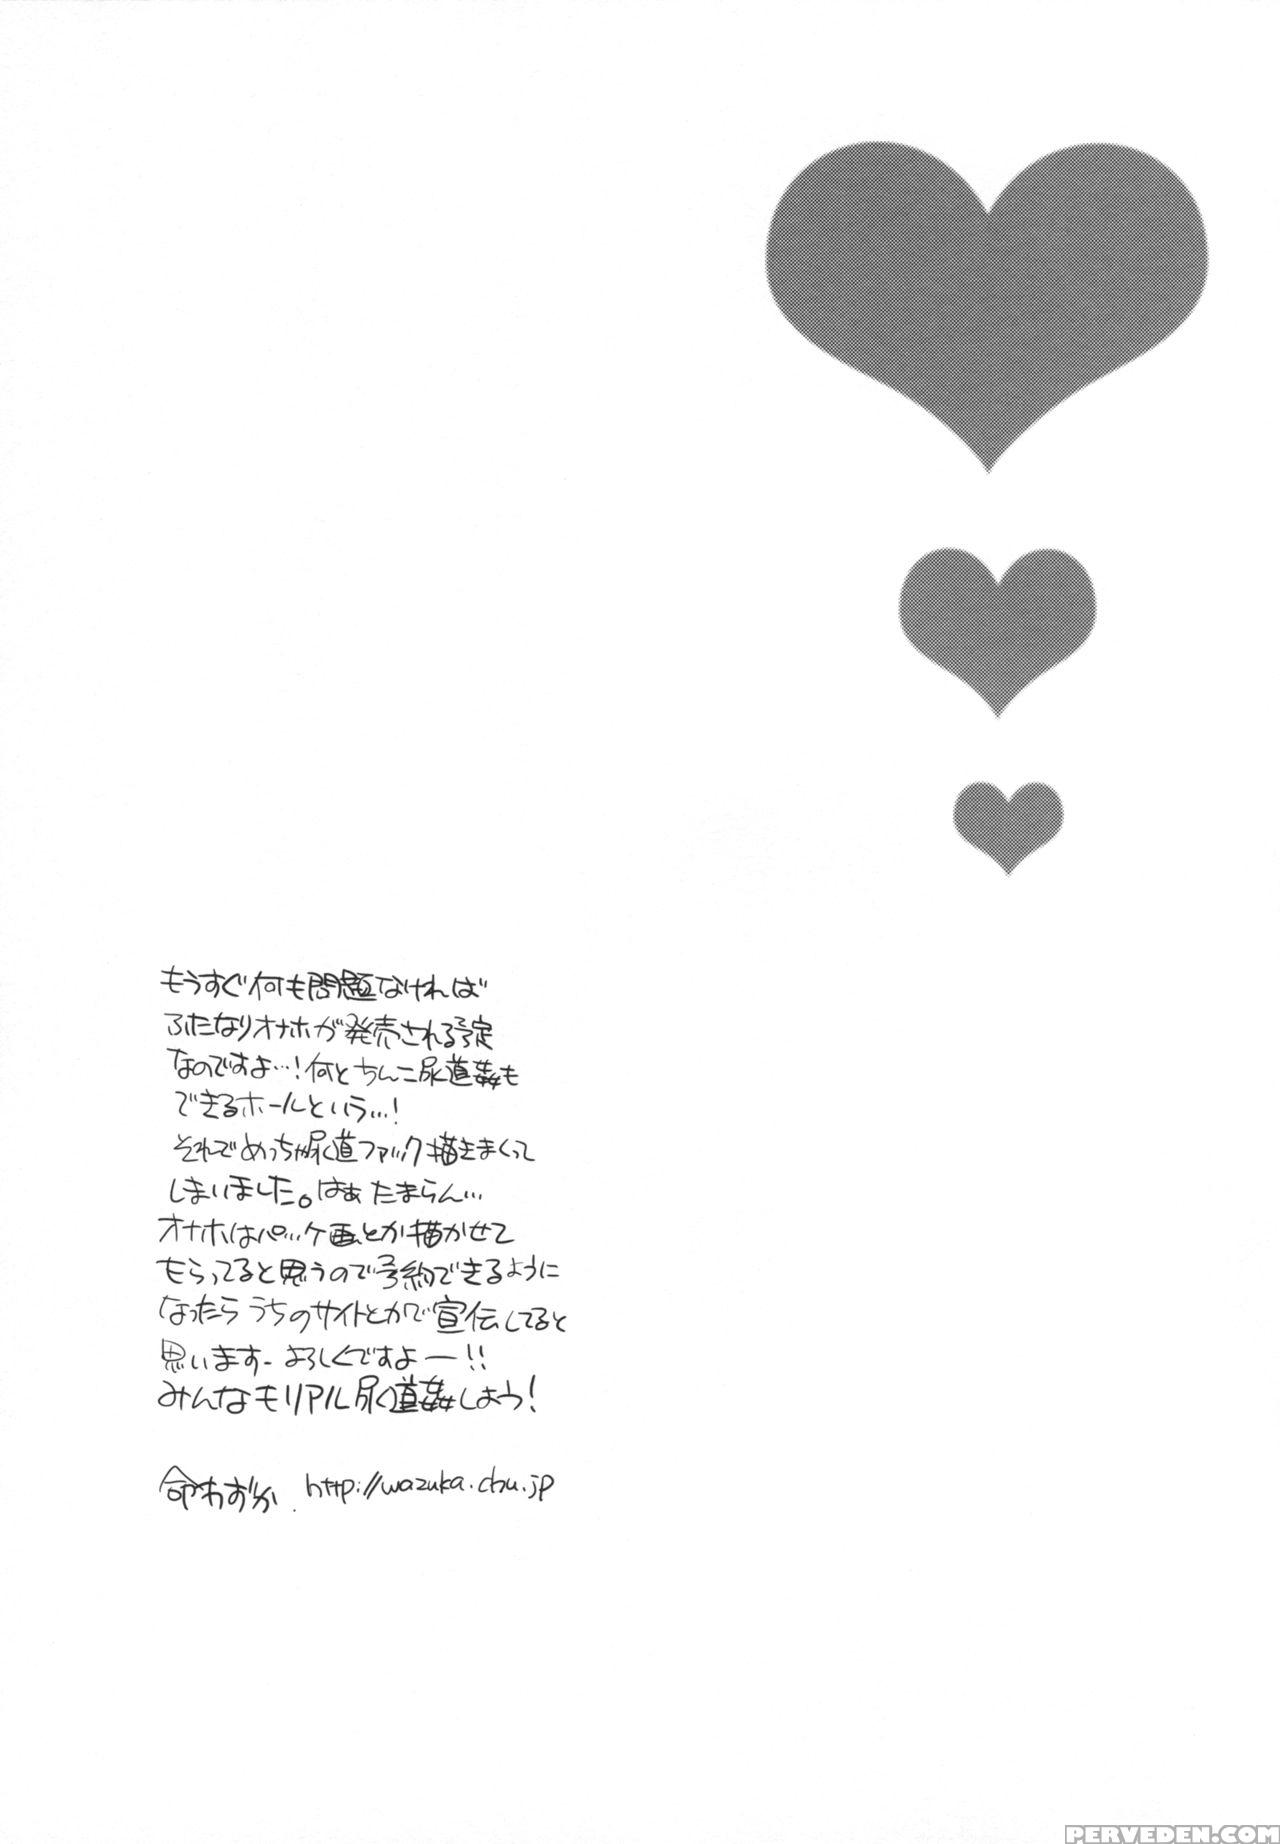 もうすぐ何も問題なければ
ふたなりオナホが発売される予定
なのですよ…！何とちんこ尿道姦も
できるホールという…！
それでめっちゃ尿道ファック描きまくって
しまいました。はぁたまらん…
オナホはパッケ画とか描かせて
もらってると思うので予約できるように
なったらうちのサイトとかで宣伝してると
思います- よろしくですよー!!
みんなもリアル尿道姦しよう!
命わずか. http://wazuka.chu.jp
PERVEDEN.COM